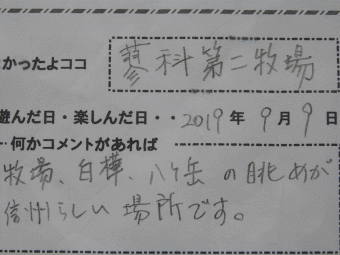 かったよココ
蓼科第二牧場
遊んだ日・楽しんだ日・・2019年9月9日
何かコメントがあれば
牧場、白樺、八ヶ岳の眺めが
信州らしい場所です。